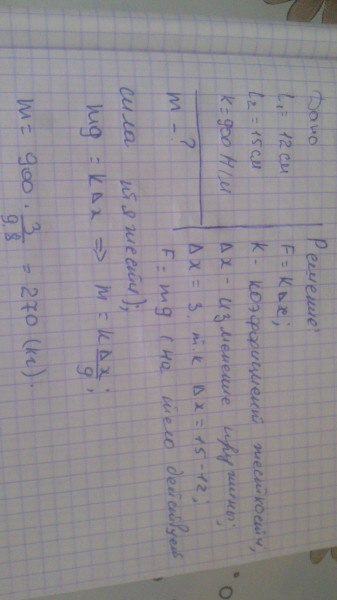 Дано
l₁ = 12 см
l₂ = 15 см
K = 900 Н/м
m - ?
Решение:
F = KΔx;
K - коэффициент жесткости,
Δx - изменение пружины;
Δx = 3 т к Δx = 15 - 12;
F = mg (на тело действует
сила тяжести);
mg = KΔx => m = KΔx/g;
m = 900 · 3/9.8 = 270 (кг).